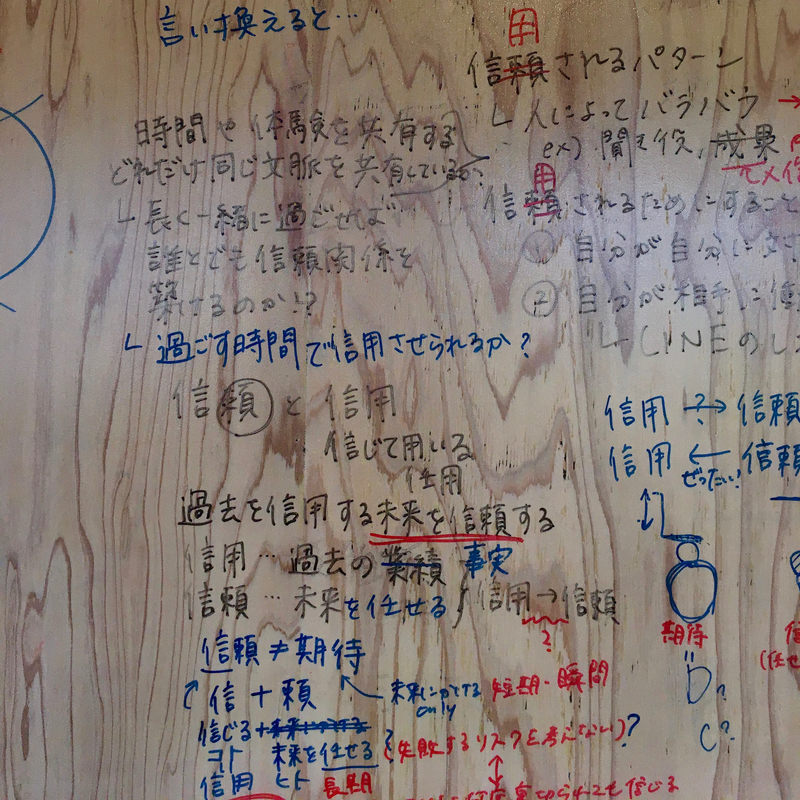 言い換えると…
時間や体験を共有する
どれだけ同じ文脈を共有しているか?
└ 長く一緒に過ごせば
誰とでも信頼関係を
築けるのか!?
└ 過ごす時間で信用させられるか?
信頼と信用
信じて用いる
任用
過去を信用する未来を信頼する
信用…過去の業績 事実
信頼…未来を任せる
信用→信頼
?
信頼≠期待
信+頼
未来に
only
短期・瞬間
信じる
コト 未来を任せる
(失敗するリスクを考えない)?
信用 ヒト 長期
用
信頼されるパターン
└ 人によってバラバラ →
ex) 聞き役、成果
用
信頼されるためにすること
① 自分が自分に
② 自分が相手に
└ LINEの
信用 ?→ 信頼
信用 ← 信頼
ぜったい!
期待
(任せ
D?
C?